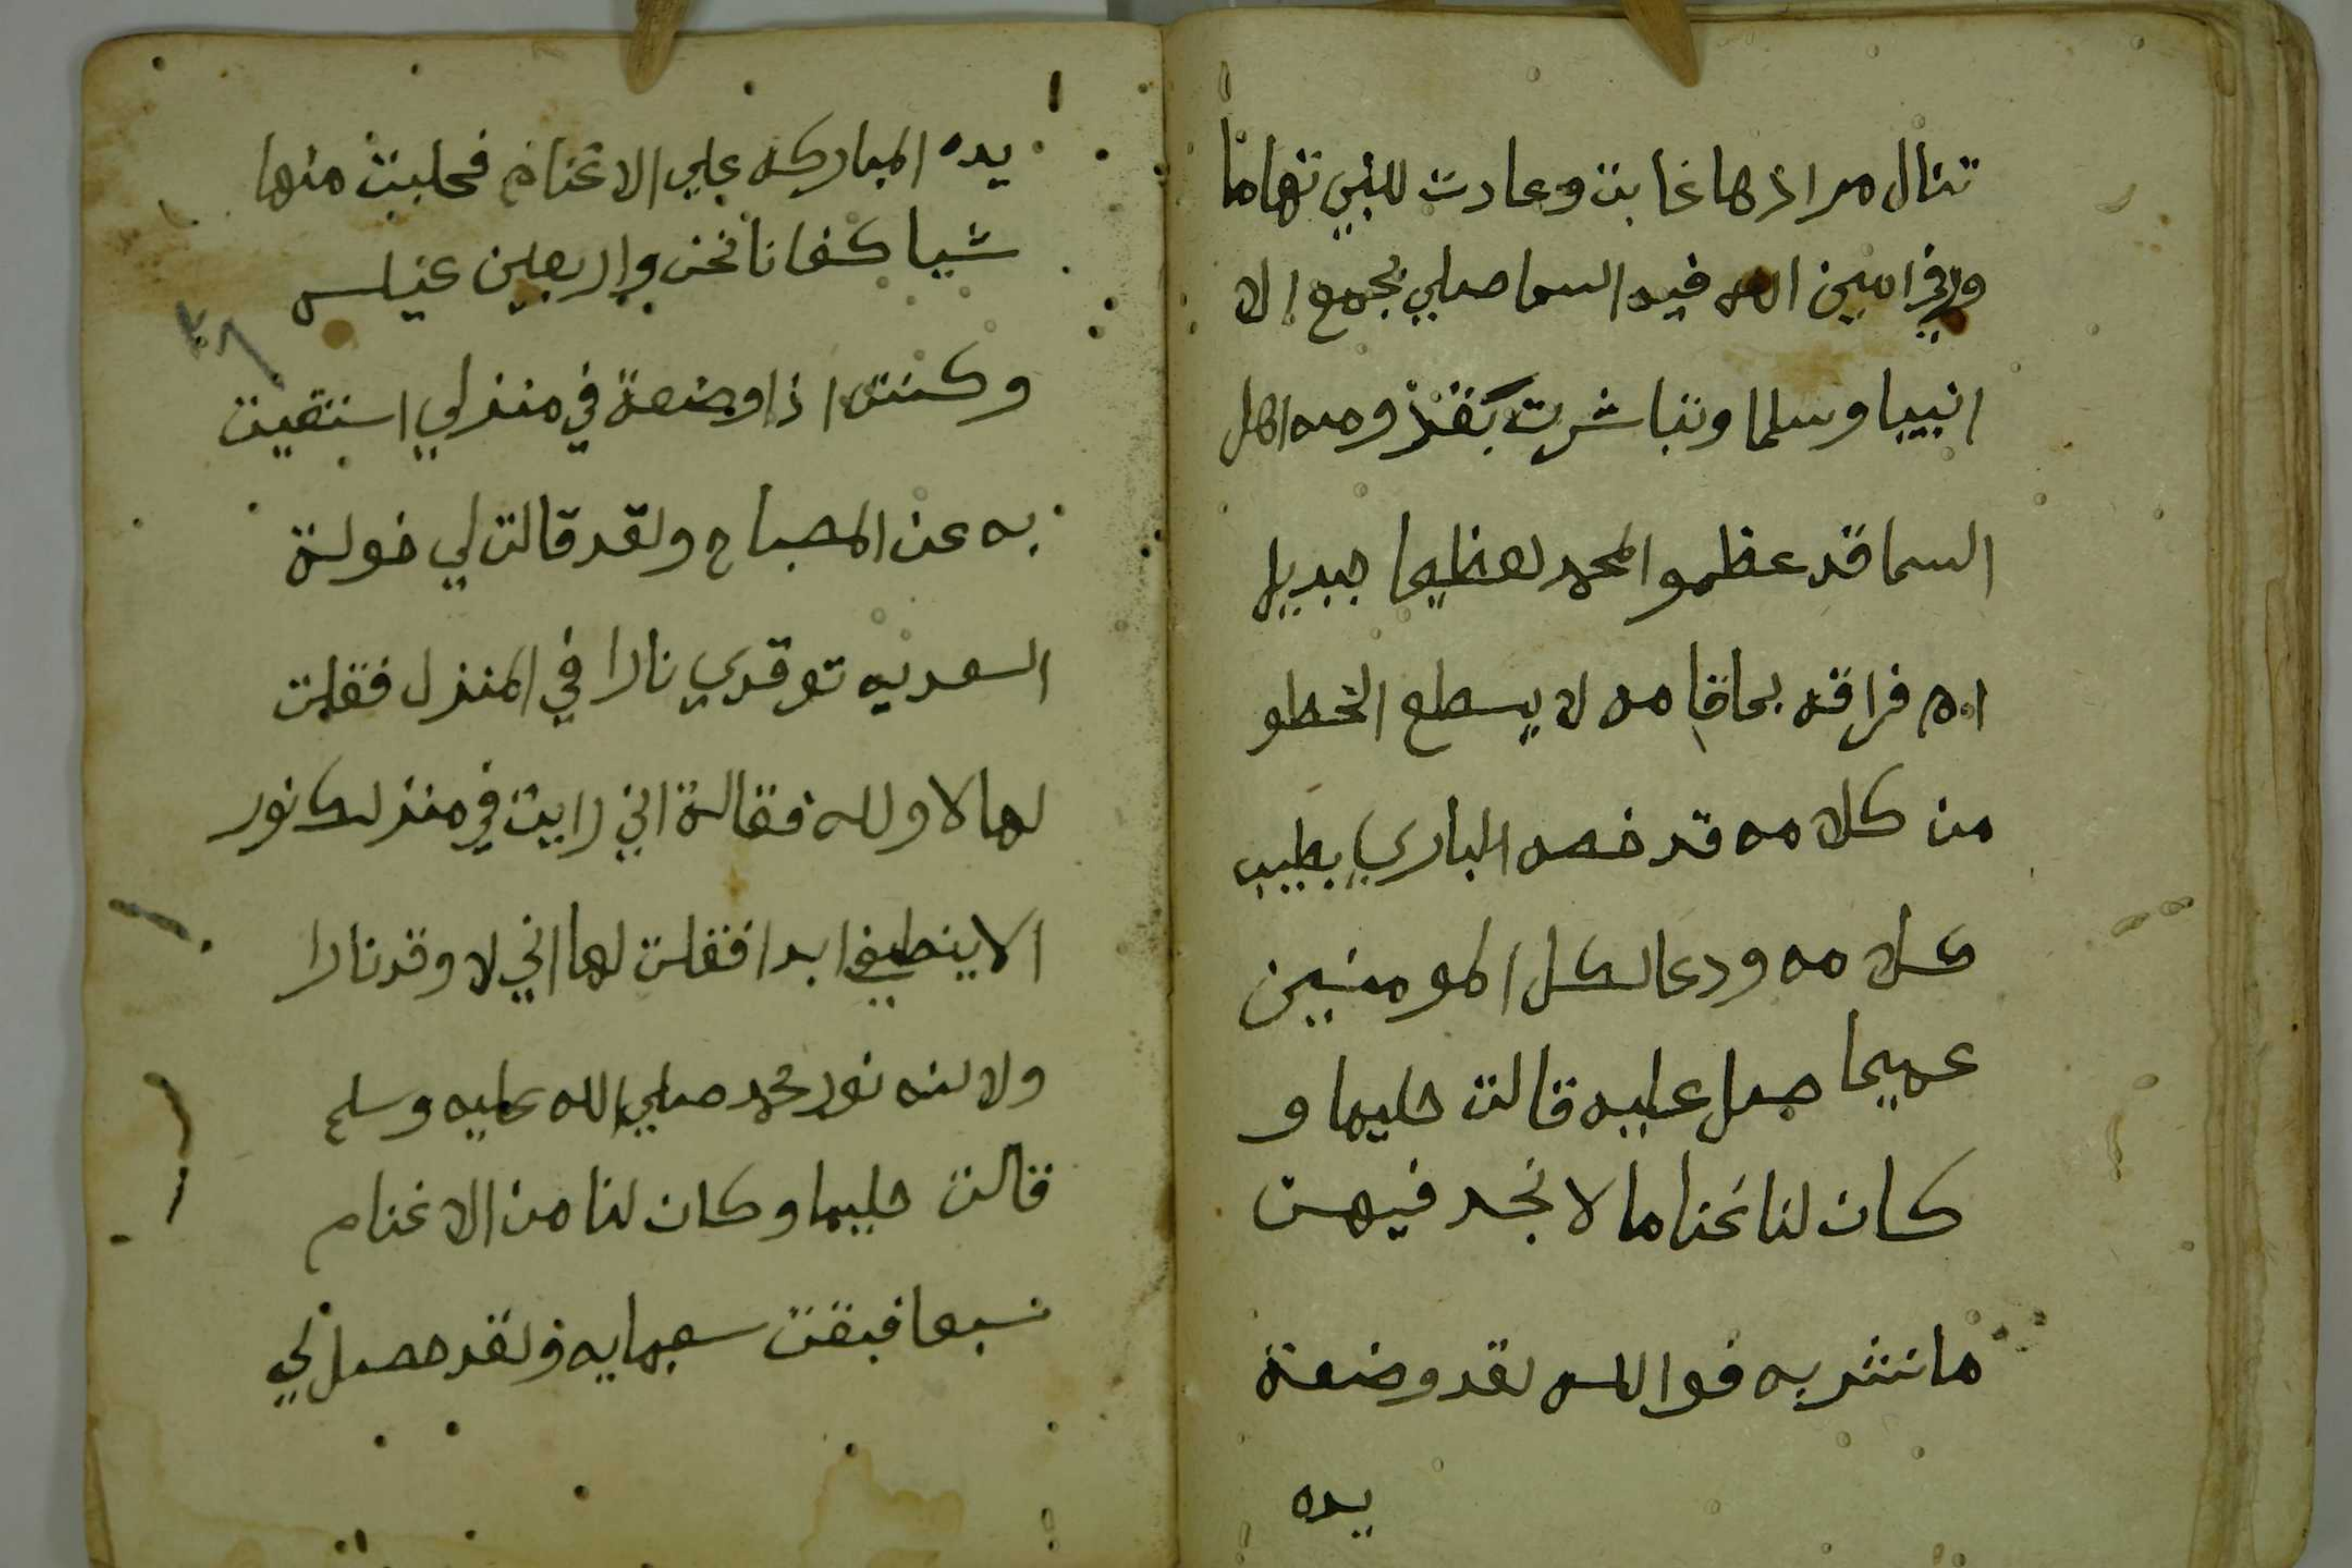 تنال مراذها غابت وعادت للنبي تهاما
وفي امين الله فيه السما صلي بجمع الا
نبيا وسلما وتباشرت بقذومه اهل
السما قد عظموا لمحمد تعظيما جبديل
فراقه بحاقامه لا يسطع الخطو
من كلامه قد خصه الباري بطيب
كلامه ودعا لكل المومنين
عميما صل عليه قالت حليما و
كان لنا غناما لا نجد فيهن
ما نشربه فوالله لقد وضعة
يده
يده المباركه علي الاغنام فحلبت منها
شيا كفانا نحن واربعين عيلــه
وكنت اذا وضعة في منزلي استقيت
به عن المصباح ولقد قالت لي خولة
السعديه توقدي نارا في المنزل فقلت
لها لا ولله فقالة اني رايت في منزلك نور
الا ينطفي ابدا فقلت لها اني لا وقد نارا
ولاكنه نور محمد صلي الله عليه وسلم
قالت حليما وكان لنا من الاغنام
سبعا فبقت سبعمايه ولقد حصل لي
٣٨